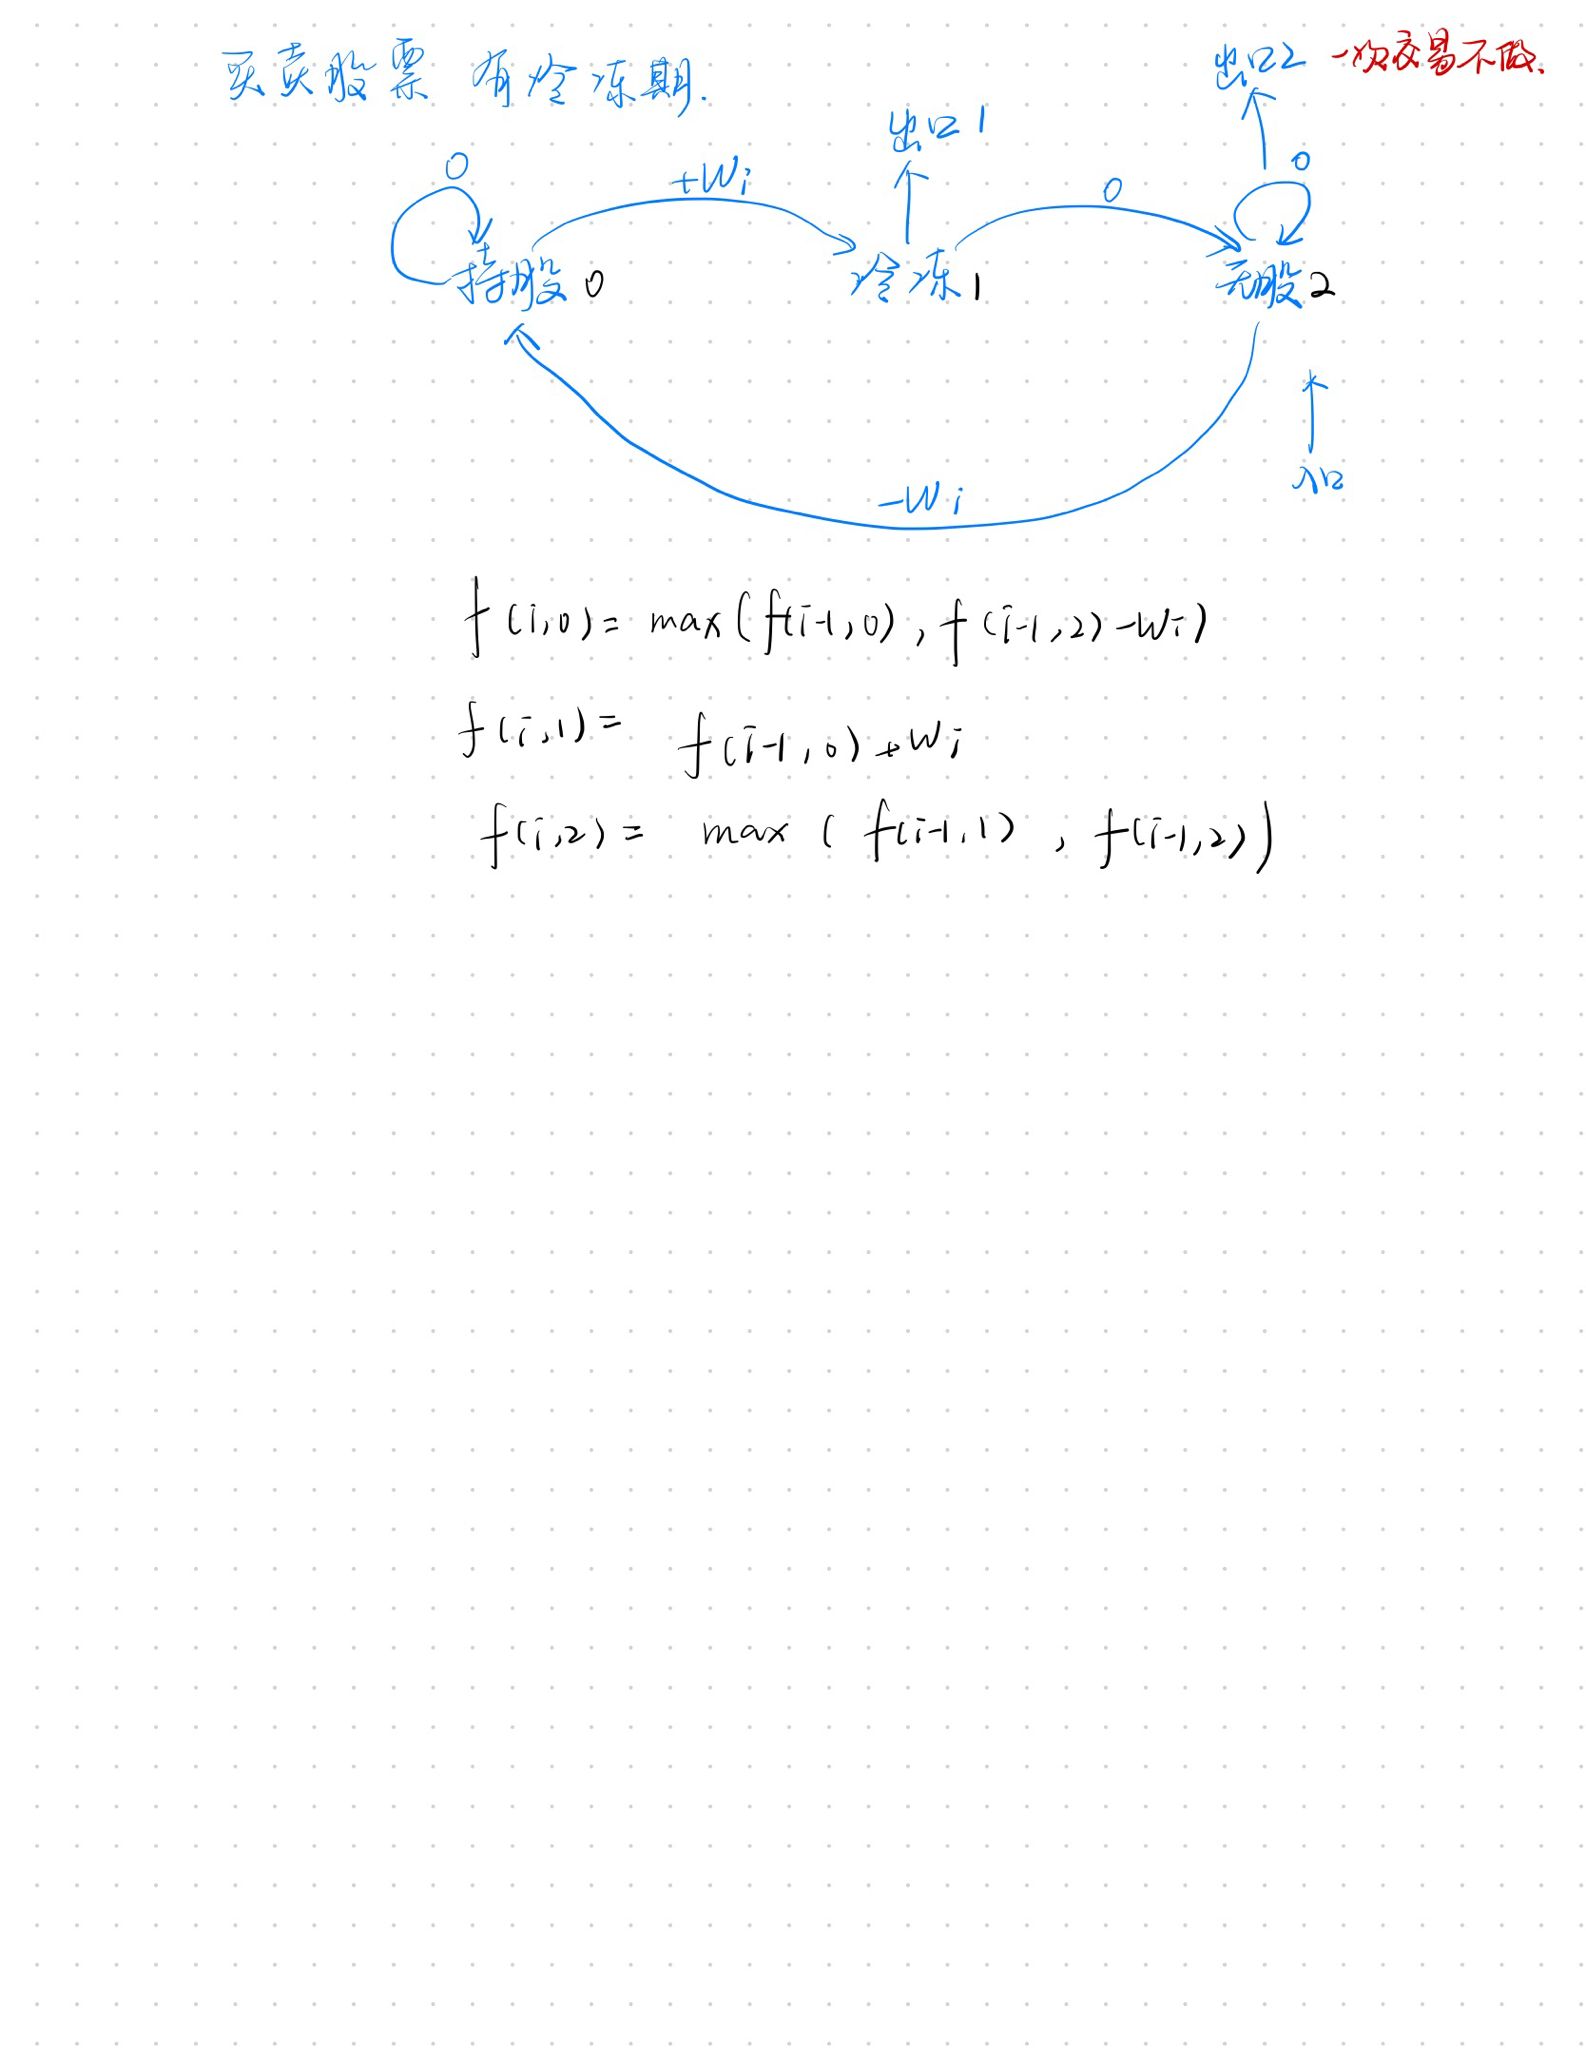 买卖股票 有冷冻期.
出口2 一次交易不做.
出口1
0
+Wi
0
0
持股 0
冷冻 1
无股 2
入口
-Wi
f(i,0) = max(f(i-1,0), f(i-1,2)-Wi)
f(i,1) = f(i-1,0)+Wi
f(i,2) = max(f(i-1,1), f(i-1,2))